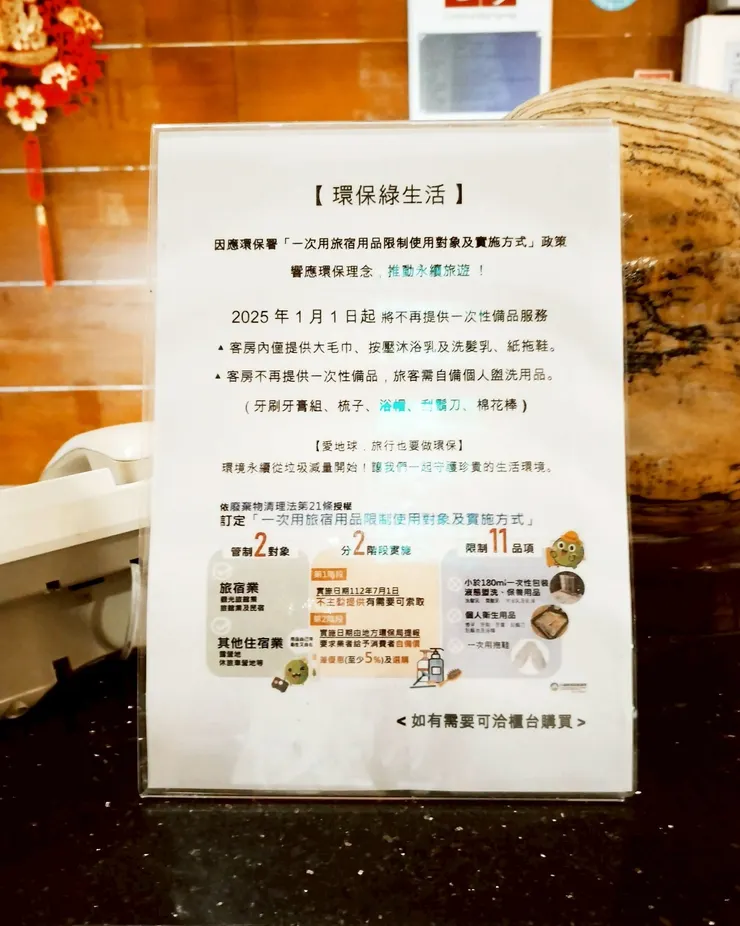 【 環保綠生活 】
因應環保署「一次用旅宿用品限制使用對象及實施方式」政策
響應環保理念，推動永續旅遊 ！
2025 年 1 月 1 日起 將不再提供一次性備品服務
▲ 客房內僅提供大毛巾、按壓沐浴乳及洗髮乳、紙拖鞋。
▲ 客房不再提供一次性備品，旅客需自備個人盥洗用品。
(牙刷牙膏組、梳子、浴帽、刮鬍刀、棉花棒)
【愛地球．旅行也要做環保】
環境永續從垃圾減量開始！讓我們一起守護珍貴的生活環境。
依廢棄物清理法第21條授權
訂定「一次用旅宿用品限制使用對象及實施方式」
管制2對象
旅宿業
觀光旅館業
旅館業及民宿
其他住宿業
露營地
休旅車營地等
分2階段實施
第1階段
實施日期112年7月1日
不主動提供有需要可索取
第2階段
實施日期由地方環保局提報
要求業者給予消費者自備價
差優惠(至少5%)及選購
限制11品項
小於180ml一次性包裝
液態盥洗、保養用品
個人衛生用品
一次用拖鞋
<如有需要可洽櫃台購買>